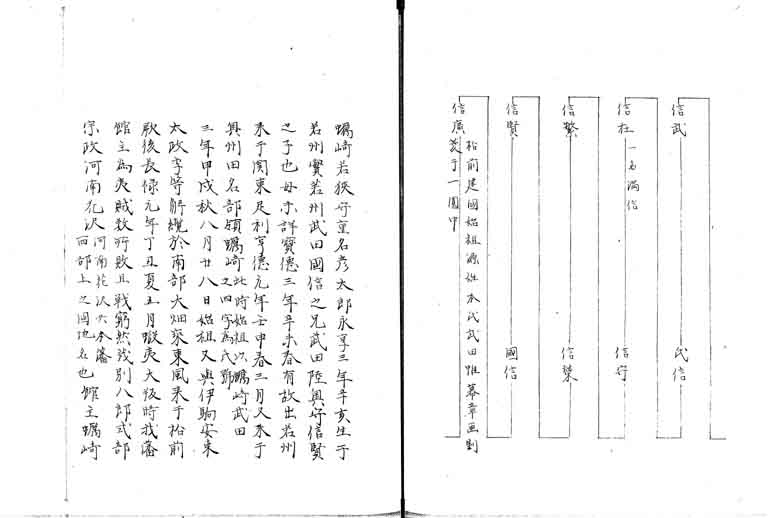 信武
氏信
信在 一名満信
信守
信繁
信榮
信賢
國信
信廣
松前建國始祖源姓本氏武田惟幕章画割
菱于一圍中
蠣崎若狭守童名彦太郎永享三年辛亥生于
若州實若州武田國信之兄武田陸奥守信賢
之子也母未詳寶德三年辛未春有故出若州
来于関東足利享德元年壬申春三月又来于
奥州田名部領蠣崎此時始祖以蠣崎武田
又四字為氏號
三年甲戌秋八月廿八日始祖又與伊駒安東
太政季等解纜於南部大畑乘東風来于松前
厥後長禄元年丁丑夏五月蝦夷大叛時我藩
館主為夷賊数所敗且戦窮然残別八郎式部
宗政河南花沢河南花沢六本藩
西部上之國地名也館主蠣崎